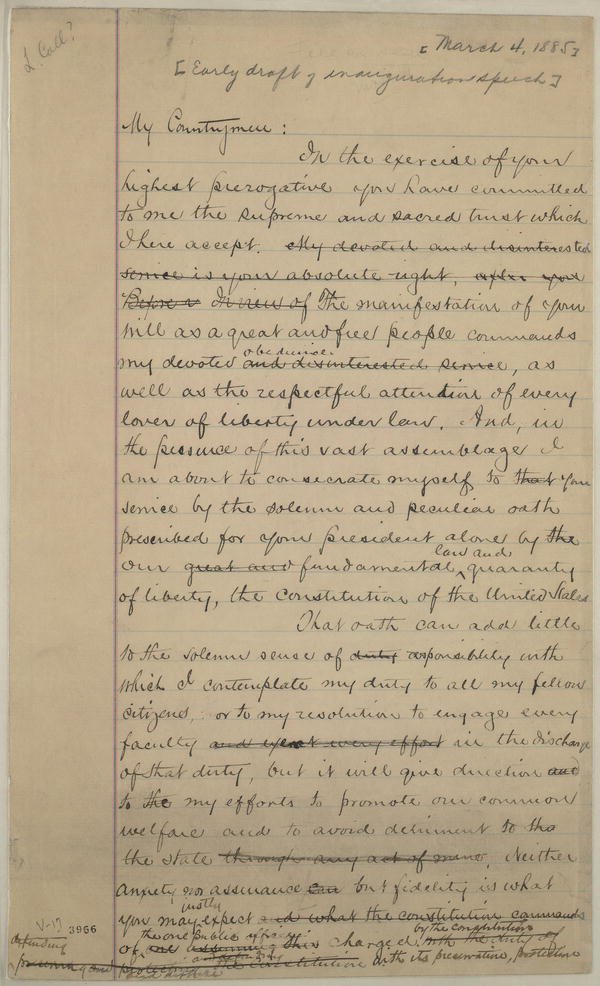 L. Coll?
[March 4, 1885]
[Early draft of inauguration speech]
My Countrymen:
In the exercise of your
highest prerogative you have committed
to me the supreme and sacred trust which
I here accept. My devoted and disinterested
service is your absolute right, after you
Before a In view of The manifestation of your
will as a great and free people commands
obedience
my devoted and disinterested service, as
well as the respectful attention of every
lover of liberty under law. And, in
the presence of this vast assemblage I
am about to consecrate myself to that your
service by the solemn and peculiar oath
prescribed for your president alone by the
law and
our great and fundamental ‸ guaranty
of liberty, the Constitution of the United States
That oath can add little
to the solemn sense of duty responsibility with
which I contemplate my duty to all my fellow
citizens, or to my resolution to engage every
faculty and exert every effort in the discharge
of that duty, but it will give direction and
to the my efforts to promote our common
welfare and to avoid detriment to the
the state through any act of mine. Neither
anxiety nor assurance can but fidelity is what
justly
you may expect and what the constitution commands
the one Public officer by the constitution
of, one assuming this charged with the duty of
V-17 3966
defending
preserving and protecting the constitution with its preservation, protection
and defense